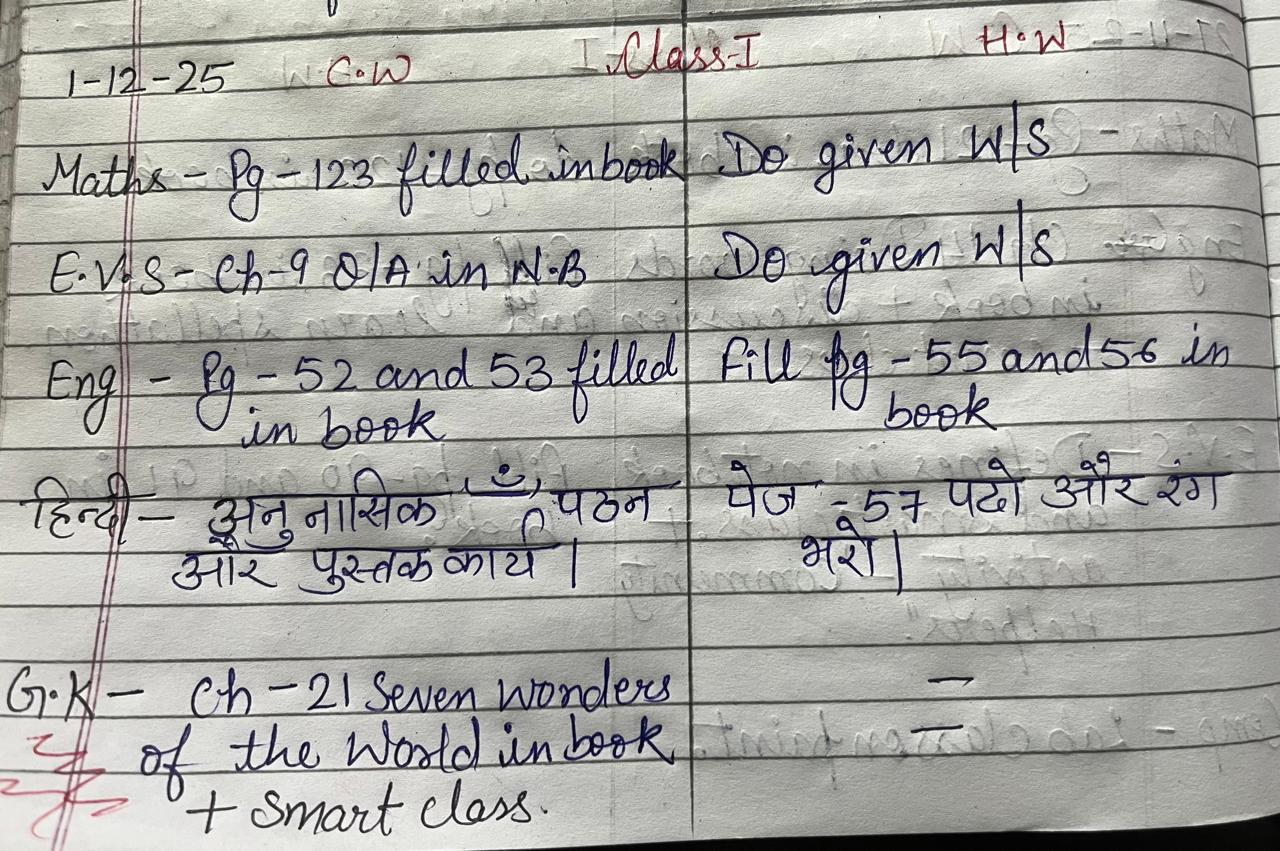 1-12-25 C.W Class-I H.W
Maths - Pg - 123 filled in book Do given W/S -
E.V.S - Ch-9 Q/A in N.B Do given W/S
Eng - Pg - 52 and 53 filled Fill pg - 55 and 56 in
in book book
हिन्दी - अनुनासिक ( ँ ) पठन पेज - 57 पढो और रंग
और पुस्तक कार्य । भरो।
G.K - Ch - 21 Seven wonders —
of the World in book —
+ Smart class.